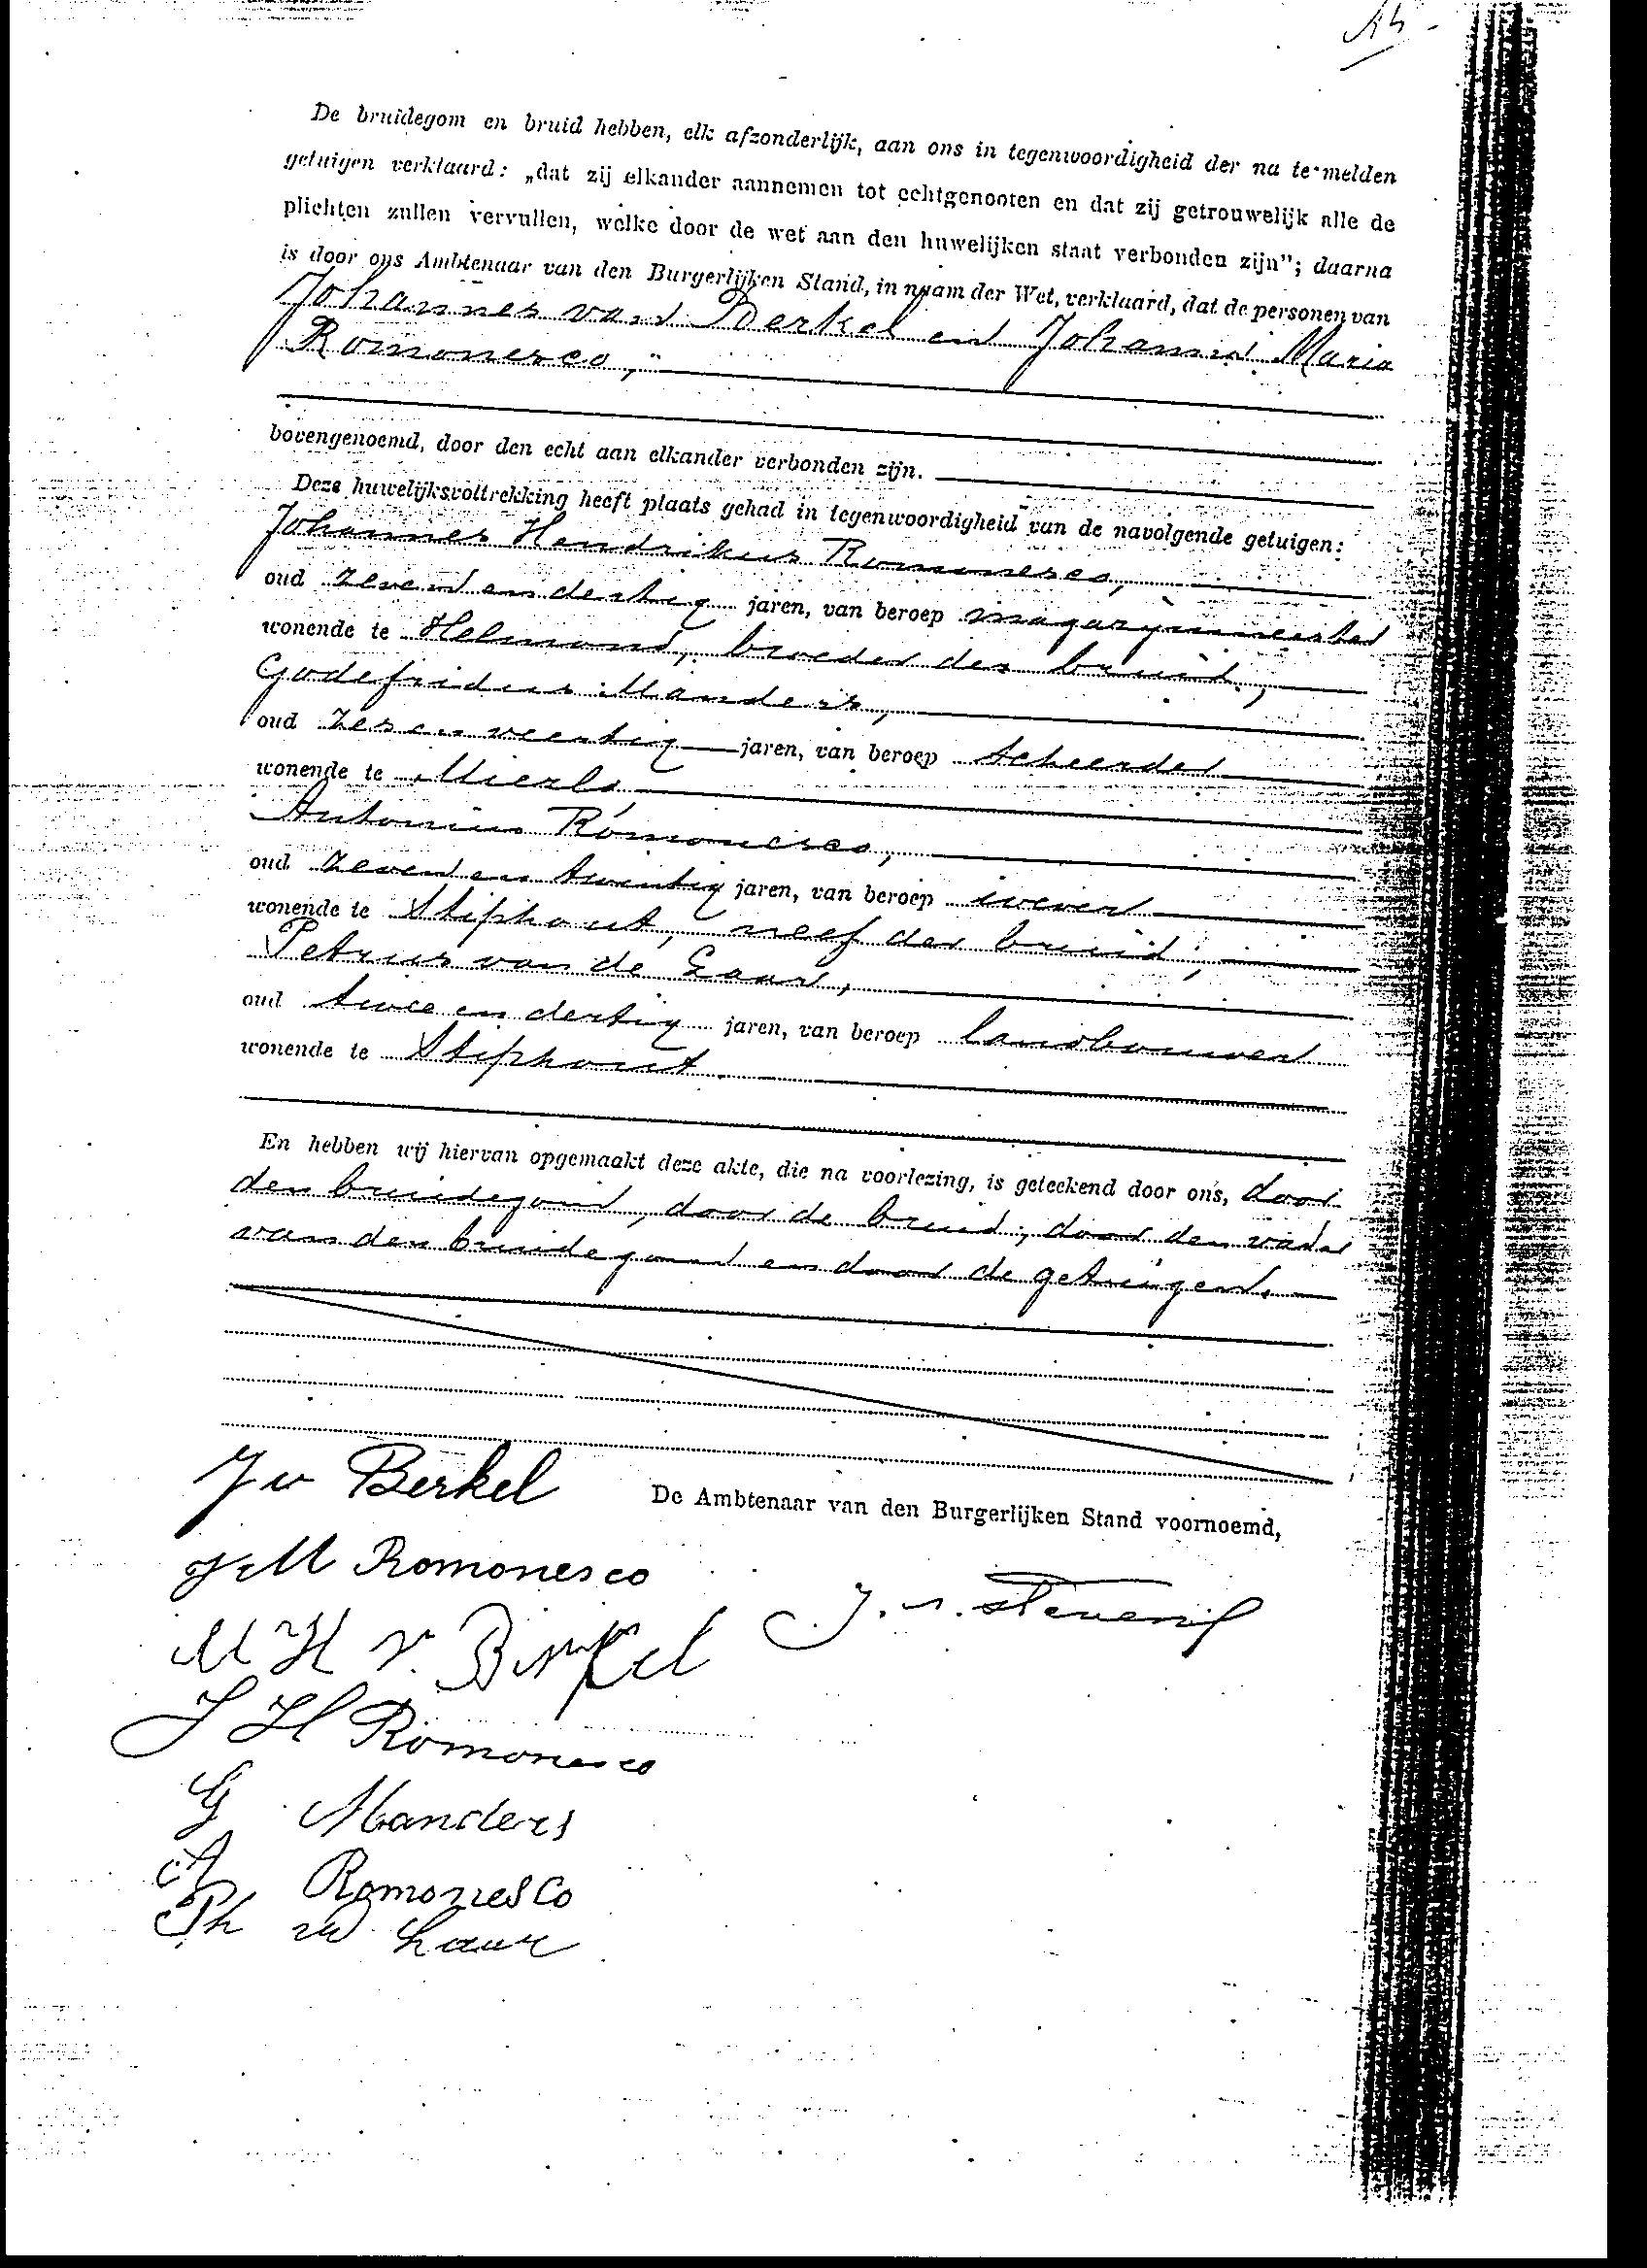 De bruidegom en bruid hebben, elk afzonderlijk, aan ons in tegenwoordigheid der na te melden
getuigen verklaard: „dat zij elkander aannemen tot echtgenooten en dat zij getrouwelijk alle de
plichten zullen vervullen, welke door de wet aan den huwelijken staat verbonden zijn"; daarna
is door ons Ambtenaar van den Burgerlijken Stand, in naam der Wet, verklaard, dat de personen van
Johannes van Berkel en Johanna Maria
Romonesco,
bovengenoemd, door den echt aan elkander verbonden zijn.
Deze huwelijksvoltrekking heeft plaats gehad in tegenwoordigheid van de navolgende getuigen:
Johannes Hendrikus Romonesco,
oud zeven en dertig jaren, van beroep magazijnmeester
wonende te Helmond, broeder der bruid,
Godefridus Manders,
oud zes en veertig jaren, van beroep scheerder
wonende te Mierlo
Antonius Romonesco,
oud zeven en twintig jaren, van beroep wever
wonende te Stiphout, neef der bruid;
Petrus van de Laar,
oud twee en dertig jaren, van beroep landbouwer
wonende te Stiphout
En hebben wij hiervan opgemaakt deze akte, die na voorlezing, is geteekend door ons, door
den bruidegom, door de bruid, door den vader
van den bruidegom en door de getuigen.
J v Berkel
De Ambtenaar van den Burgerlijken Stand voornoemd,
J M Romonesco
M H v. Berkel
J H Romonesco
G Manders
A Romonesco
Ph vd Laar